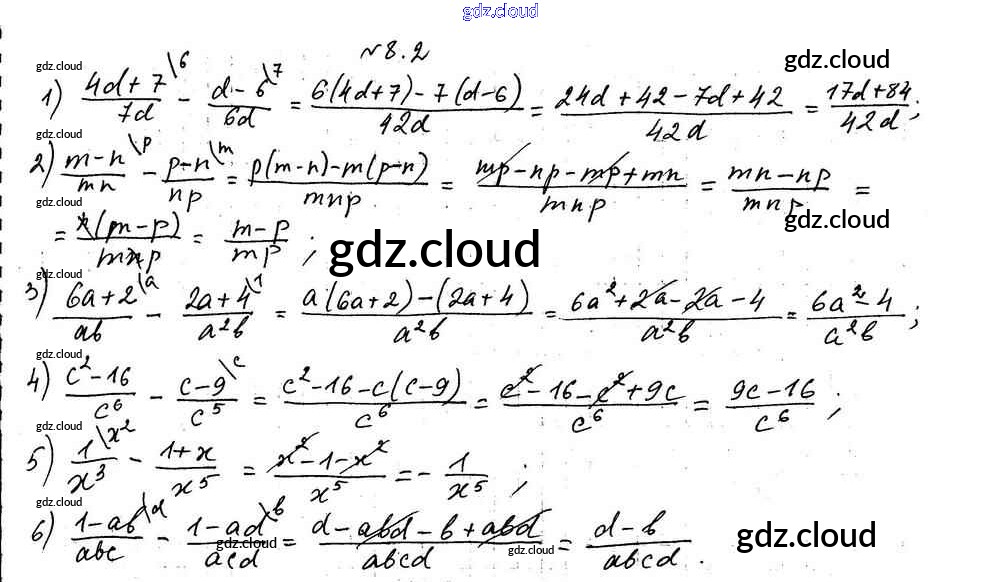 gdz.cloud
№8.2
gdz.cloud gdz.cloud
1) (4d+7)/(7d) \6 - (d-6)/(6d) \7 = (6(4d+7)-7(d-6))/(42d) = (24d+42-7d+42)/(42d) = (17d+84)/(42d);
gdz.cloud
2) (m-n)/(mn) \p - (p-n)/(np) \m = (p(m-n)-m(p-n))/(mnp) = (mp-np-mp+mn)/(mnp) = (mn-np)/(mnp) =
gdz.cloud gdz.cloud
= (n(m-p))/(mnp) = (m-p)/(mp);
gdz.cloud
gdz.cloud
3) (6a+2)/(ab) \a - (2a+4)/(a²b) \1 = (a(6a+2)-(2a+4))/(a²b) = (6a²+2a-2a-4)/(a²b) = (6a²-4)/(a²b);
gdz.cloud
4) (c²-16)/(c⁶) - (c-9)/(c⁵) \c = (c²-16-c(c-9))/(c⁶) = (c²-16-c²+9c)/(c⁶) = (9c-16)/(c⁶);
gdz.cloud
5) 1/(x³) \x² - (1+x)/(x⁵) = (x²-1-x²)/(x⁵) = -1/(x⁵);
gdz.cloud
6) (1-ab)/(abc) \d - (1-ad)/(acd) \b = (d-abd-b+abd)/(abcd) = (d-b)/(abcd).
gdz.cloud gdz.cloud gdz.cloud
gdz.cloud